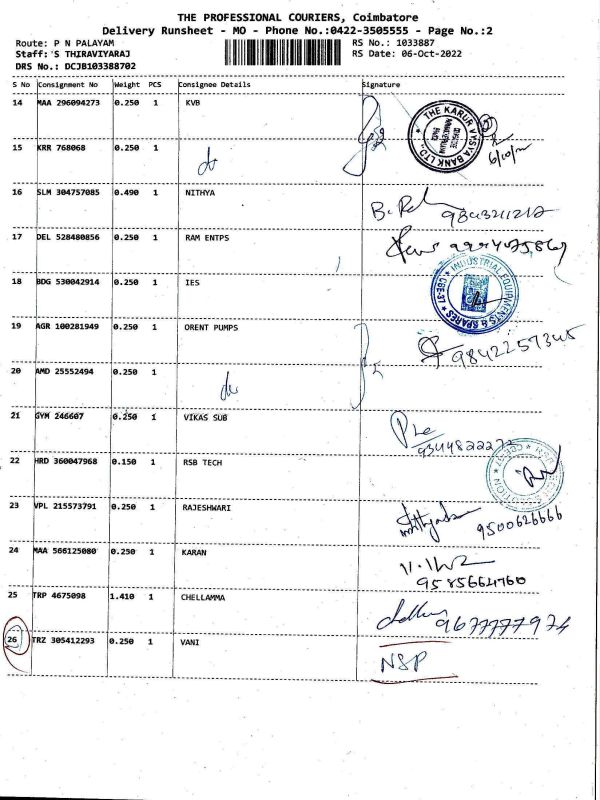 THE PROFESSIONAL COURIERS, Coimbatore
Delivery Runsheet - MO - Phone No.:0422-3505555 - Page No.:2
Route: P N PALAYAM RS No.: 1033887
Staff: S THIRAVIYARAJ RS Date: 06-Oct-2022
DRS No.: DCJB103388702
S No Consignment No Weight PCS Consignee Details Signature
14 MAA 296094273 0.250 1 KVB
THE KARUR VYSYA BANK LTD
6/10/22
15 KRR 768068 0.250 1
do
16 SLM 304757085 0.490 1 NITHYA
17 DEL 528480856 0.250 1 RAM ENTPS
18 BDG 530042914 0.250 1 IES
INDUSTRIAL EQUIPMENTS & SPARES CBE-37
19 AGR 100281949 0.250 1 ORENT PUMPS
9842257345
20 AMD 25552494 0.250 1
do
21 GYM 246607 0.250 1 VIKAS SUB
22 HRD 360047968 0.150 1 RSB TECH
23 VPL 215573791 0.250 1 RAJESHWARI
9500626666
24 MAA 566125080 0.250 1 KARAN
9585664760
25 TRP 4675098 1.410 1 CHELLAMMA
9677777974
26 TRZ 305412293 0.250 1 VANI
NSP